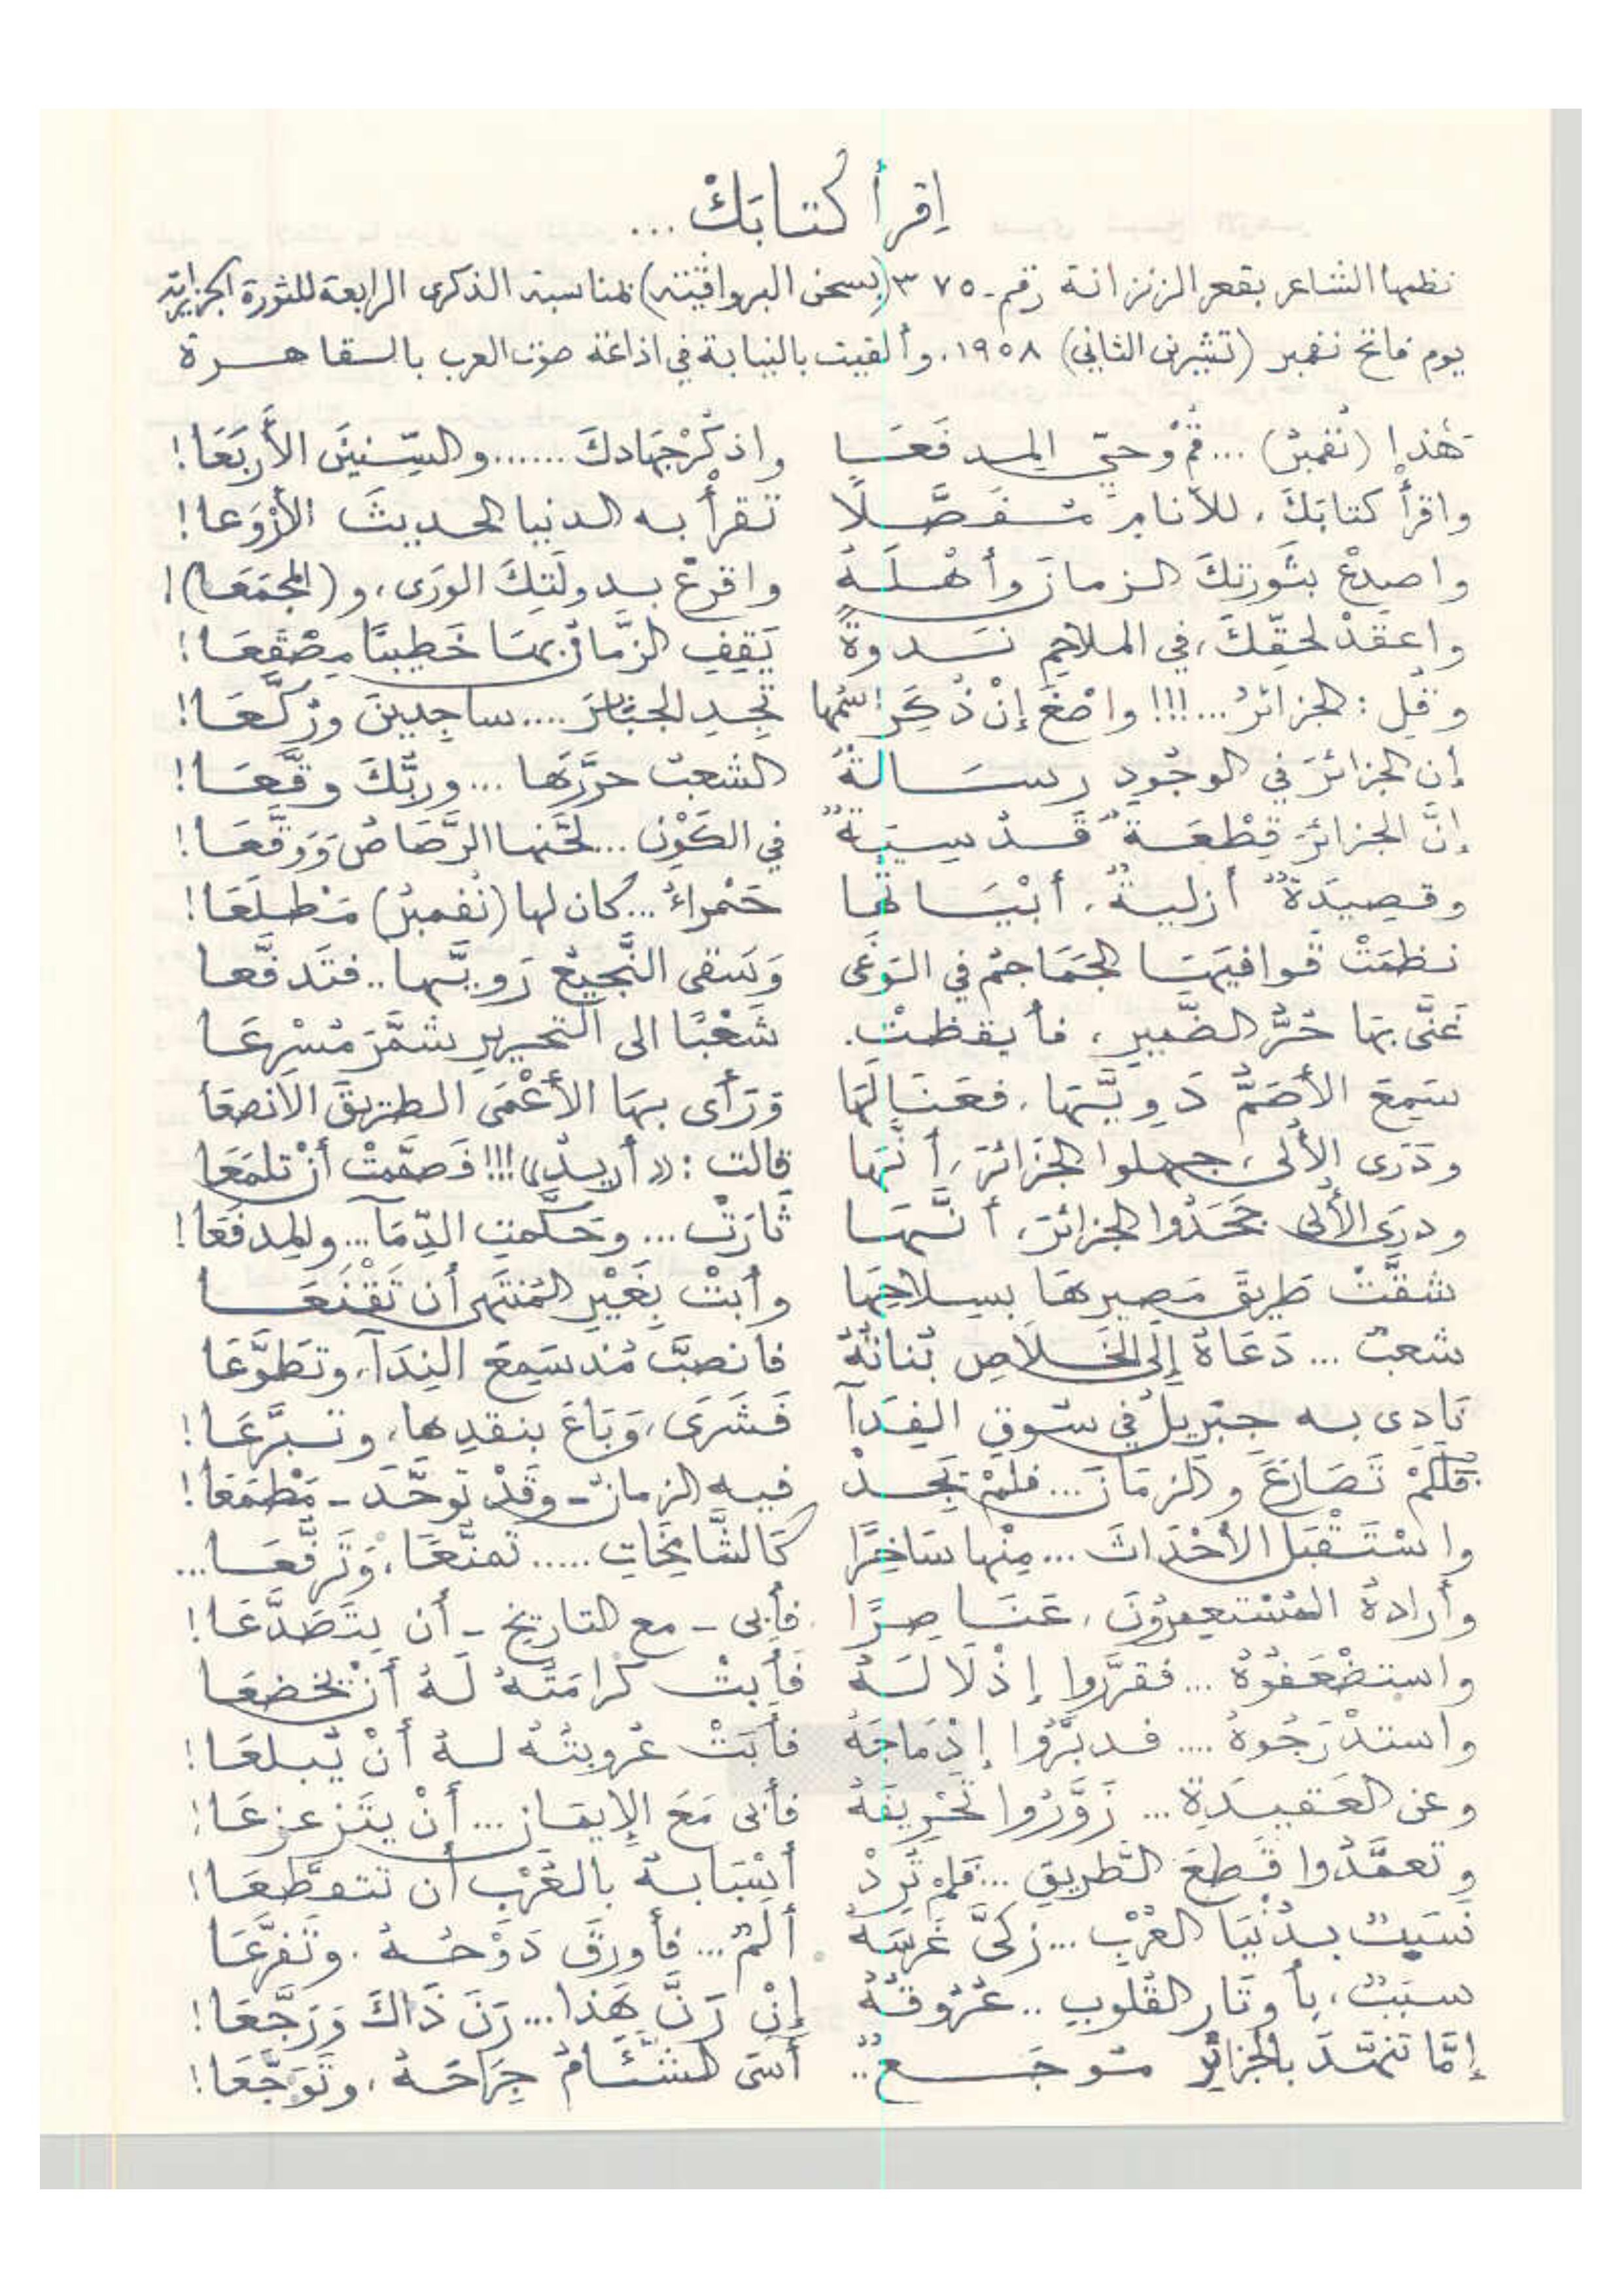 اِقرأ كتابَكْ ...
نظمها الشاعر بقعر الزنزانة رقم - ٣٧٥ (بسجن البرواڤية) بمناسبة الذكرى الرابعة للثورة الجزائرية
يوم فاتح نفمبر (تشرين الثاني) ١٩٥٨، وألقيت بالنيابة في اذاعة صوت العرب بالقاهرة
هٰذا (نُفمبرُ) ... قُمْ وحيّ المِدفَعَا واذكُرْ جِهَادكَ ...... والسِّنينَ الأَربَعَا!
واقرأْ كتابَكَ، للأنامِ مُفَصَّلًا تَقرأْ به الدنيا الحديثَ الأَرْوَعا!
واصدعْ بثَورتِكَ الزمانَ وأهْلَهُ واقرعْ بدولَتِكَ الورَى، و(المجمَعَا)!
واعقدْ لحقِّكَ، في الملاحمِ نَدوةً يَقِفِ الزَّمانُ بهَا خَطيبًا مِصْقَعَا!
وقُلِ: الجزائرُ...!!! واصْغَ إنْ ذُكِرَ اسمُها تَجِدِ الجبَابرَ .... ساجِدينَ ورُكَّعَا!
إن الجزائرَ في الوجُودِ رسَالةٌ الشعبُ حرَّرَهَا ... وربُّكَ وقَّعَا!
إنَّ الجزائرَ قِطْعَةٌ قَدُسِيَةٌ في الكَوْنِ ... لحَّنها الرَّصَاصُ وَوَقَّعَا!
وقصِيدَةٌ أزليةٌ، أبْيَاتُها حَمْراءُ ... كان لها (نُفمبرُ) مَطلَعَا!
نظمَتْ قَوافيهَا الجمَاجمُ في الوَغَى وَسَقى النَّجيعُ رَويَّها .. فتَدفَّعا
غَنَّى بهَا حُرُّ الضَّميرِ، فأيقظتْ. شَعْبًا الى التحريرِ شمَّرَ مُسْرِعَا
سَمِعَ الأصَمُّ دَويَّهَا، فعَنَا لَهَا وَرَأى بهَا الأعْمَى الطَريقَ الانصعَا
ودَرَى الأُلى، جهلوا الجزَائرَ، أنَّهَا قالت: «أريدُ»!!! فَصمَّمتْ أنْ تلمَعَا
ودرَى الأُلى جَحَدُوا الجزائرَ، أنَّهَا ثارَتْ ... وحَكَّمتِ الدِّمَآ ... والمِدفَعَا!
شقَّتْ طَريقَ مَصيرِهَا بسِلاحِهَا وأبَتْ بِغَيْرِ المُنتَهى أن تَقْنَعَا
شعبٌ ... دَعَاهُ إلى الخَلاَصِ بُناتُهُ فانصبَّ مُذ سَمِعَ النِدَآ، وتَطوَّعَا
نَادى به جبْرِيلُ في سُوقِ الفِدَآ فَشَرَى، وَبَاعَ بنقدِها، وتبرَّعَا!
فَلكَمْ تَصَارَعَ والزمَانَ ... فلَمْ يَجدْ فيه الزمانُ - وقَدْ توحَّدَ - مَطْمَعَا!
واسْتَقْبَل الأحْدَاثَ ... مِنْها سَاخِرًا كَالشَّامخَاتِ ..... تَمنَّعَا، وَتَرفَّعَا ...
وأرادهُ المُسْتعمِرُونَ، عَنَاصِرًا فأبى - مع التاريخِ - أن يتَصَدَّعَا!
واستضْعَفوُهُ ... فقرَّروا إذْلَالَهُ فأبتْ كرامَتُهُ لَهُ أنْ يخضعَا
واستدْرَجُوهُ .... فدبَّرُوا إدْمَاجَهُ فأبَتْ عُروبتُهُ لهُ أنْ يُبلعَا!
وعن العَقيدَةِ ... زَوَّرُوا تَحْرِيفَهُ فأبى مَعَ الإيمَانِ ... أنْ يتَزعزعَا!
وتعمَّدُوا قَطعَ الطَّريقِ ... فلم تُرِدْ أسْبَابهُ بالعُرْبِ أن تتقطَّعَا!
نَسَبٌ بدُنْيَا العُرْبِ ... زكَّى غَرسَهُ ألَمٌ ... فأورقَ دَوْحُهُ، وتَفرَّعَا
سبَبٌ، بأوتَارِ القُلوبِ .. عُرُوقُهُ إنْ رَنَّ هَذا ... رَنَ ذَاكَ وَرَجَّعَا!
إمَّا تنهَّدَ بالجزائرِ مُوجَعٌ .. أسَى الشَّئَامُ جِرَاحَهُ، وتَوَجَّعَا!